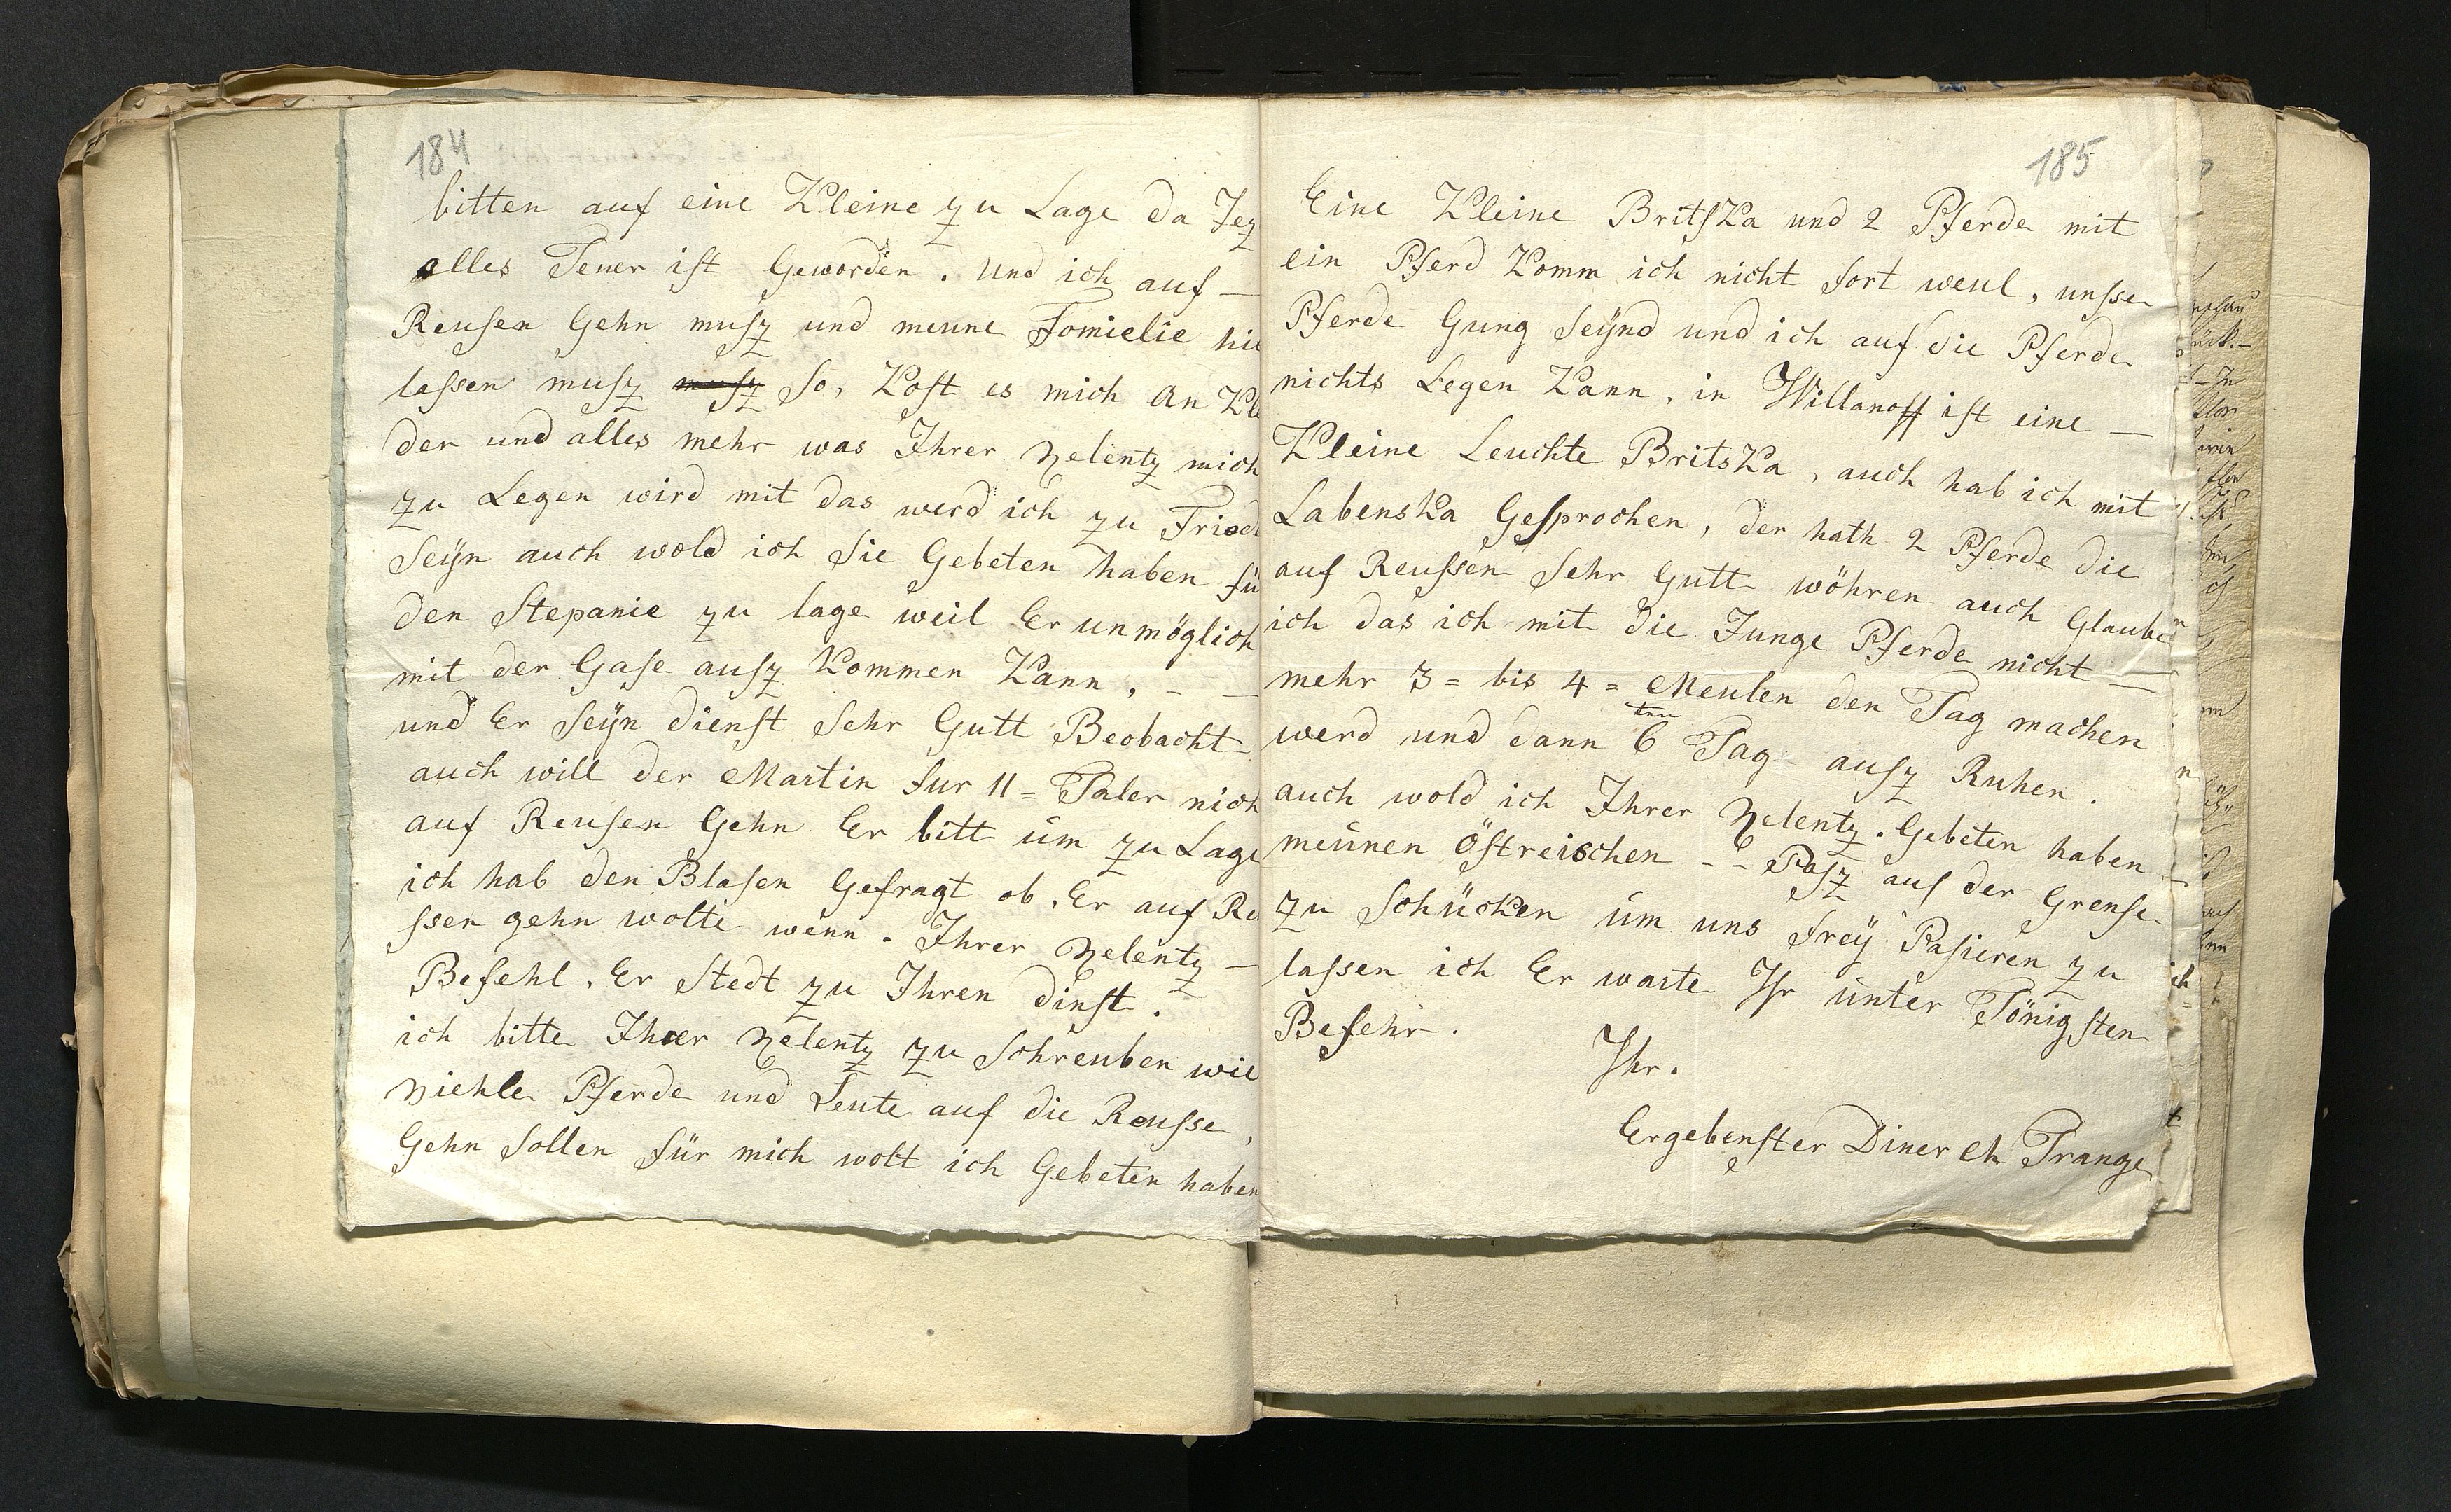 184
bitten auf eine Kleine zu Lage da Jez
alles Teuer ist Geworden. Und ich auf —
Reusen Gehn musz und meune Fomielie hie
lassen musz musz So, Kost es mich An Kle
der und alles mehr was Ihrer Xelentz mich
zu Legen wird mit das werd ich zu Fried
Seÿn auch wold ich Sie Gebeten haben fü
den Stepanie zu lage weil Er unmöglich
mit der Gase ausz Kommen Kann, - —
und Er Seÿn dienst Sehr Gutt Beobacht
auch will der Martin fur 11 = Taler nich
auf Reusen Gehn Er bitt um zu Lage
ich hab den Blasen Gefragt ob, Er auf Re
ssen gehn wolte wenn. Ihrer Xelentz —
Befehl, Er Stedt zu Ihren dinst.
ich bitte Ihrer Xelentz zu Schreuben wie
viehle Pferde und Leute auf die Reusse,
Gehn Sollen für mich wolt ich Gebeten haben
185
Eine Kleine BritsKa und 2 Pferde mit
ein Pferd Komm ich nicht fort weul, unsser
Pferde Gung Seÿnd und ich auf die Pferde
nichts Legen Kann, in Willanoff ist eine —
Kleine Leuchte BritsKa, auch hab ich mit
LabensKa Gesprochen, der hath 2 Pferde die
auf Reussen Sehr Gutt wöhren auch Glaube
ich das ich mit die Junge Pferde nicht —
mehr 3 = bis 4 = Meulen den Tag machen
werd und dann 6 ten Tag ausz Ruhen.
auch wold ich Ihrer Xelentz. Gebeten haben —
meünen Östreischen - - Pasz auf der Grense
zu Schücken um uns freÿ Pasieren zu
lassen ich Er warte Ihr unter Tönigsten
Befehr.
Ihr.
Ergebenster Diner Ch Prange